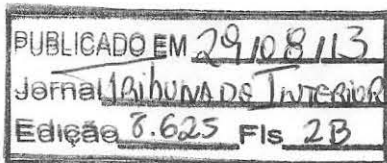 PUBLICADO EM 29/08/13
Jornal Tribuna do Interior
Edição 8.625 Fls 2B